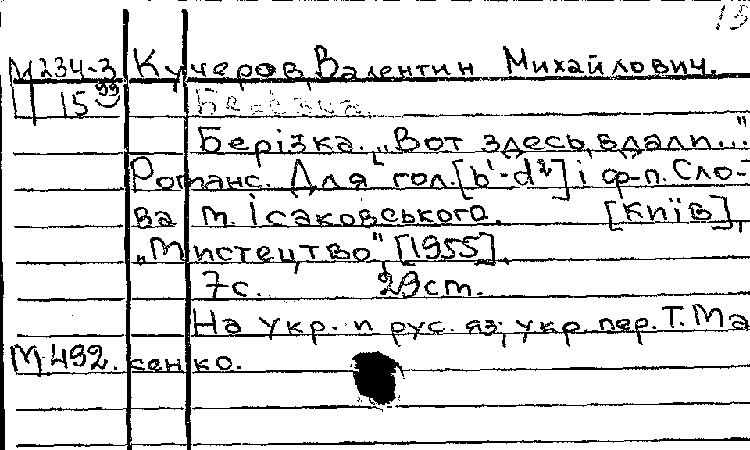 15
М234-3 Кучеров, Валентин Михайлович.
1599 Берізка.
Берізка. „Вот здесь, вдали..."
Романс. Для гол. [b¹-d²] і ф-п. Сло-
ва М. Ісаковського. [Київ],
„Мистецтво", [1955].
7с. 29 ст.
На укр. и рус. яз; укр. пер. Т. Ма
М.492. сенко.